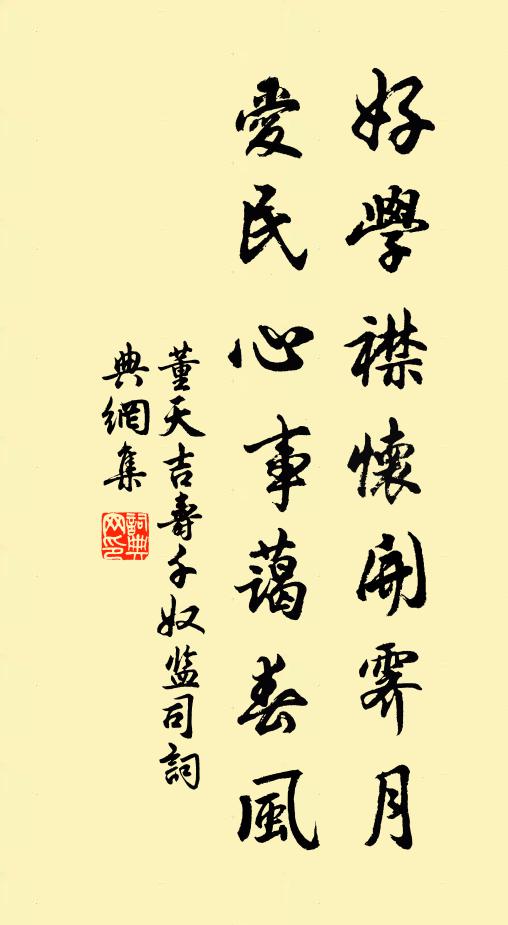 好學襟懷開霽月
愛民心事藹春風
董天吉壽千奴监司詞
典網集
詞典
网印